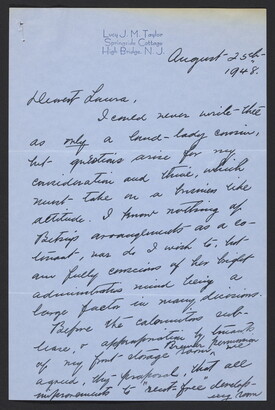 Lucy J. M. Taylor
Springside Cottage
High Bridge, N. J.
August - 25th -
1948.
Dearest Laura,
I could never write thee
as only a land-lady cousin,
but questions arise for my
consideration and thine, which
must take on a business like
attitude. I know nothing of
Betsy's arrangements as a co-
tenant, nor do I wish to, but
am fully conscious of her Swift
administrative mind being a
large factor in many decisions.
Before the calamitous sub-
lease, & appropriation by tenants
of my front storage room
we
agreed, thy proposal, that all
improvements to "rent-free develop-
ing room